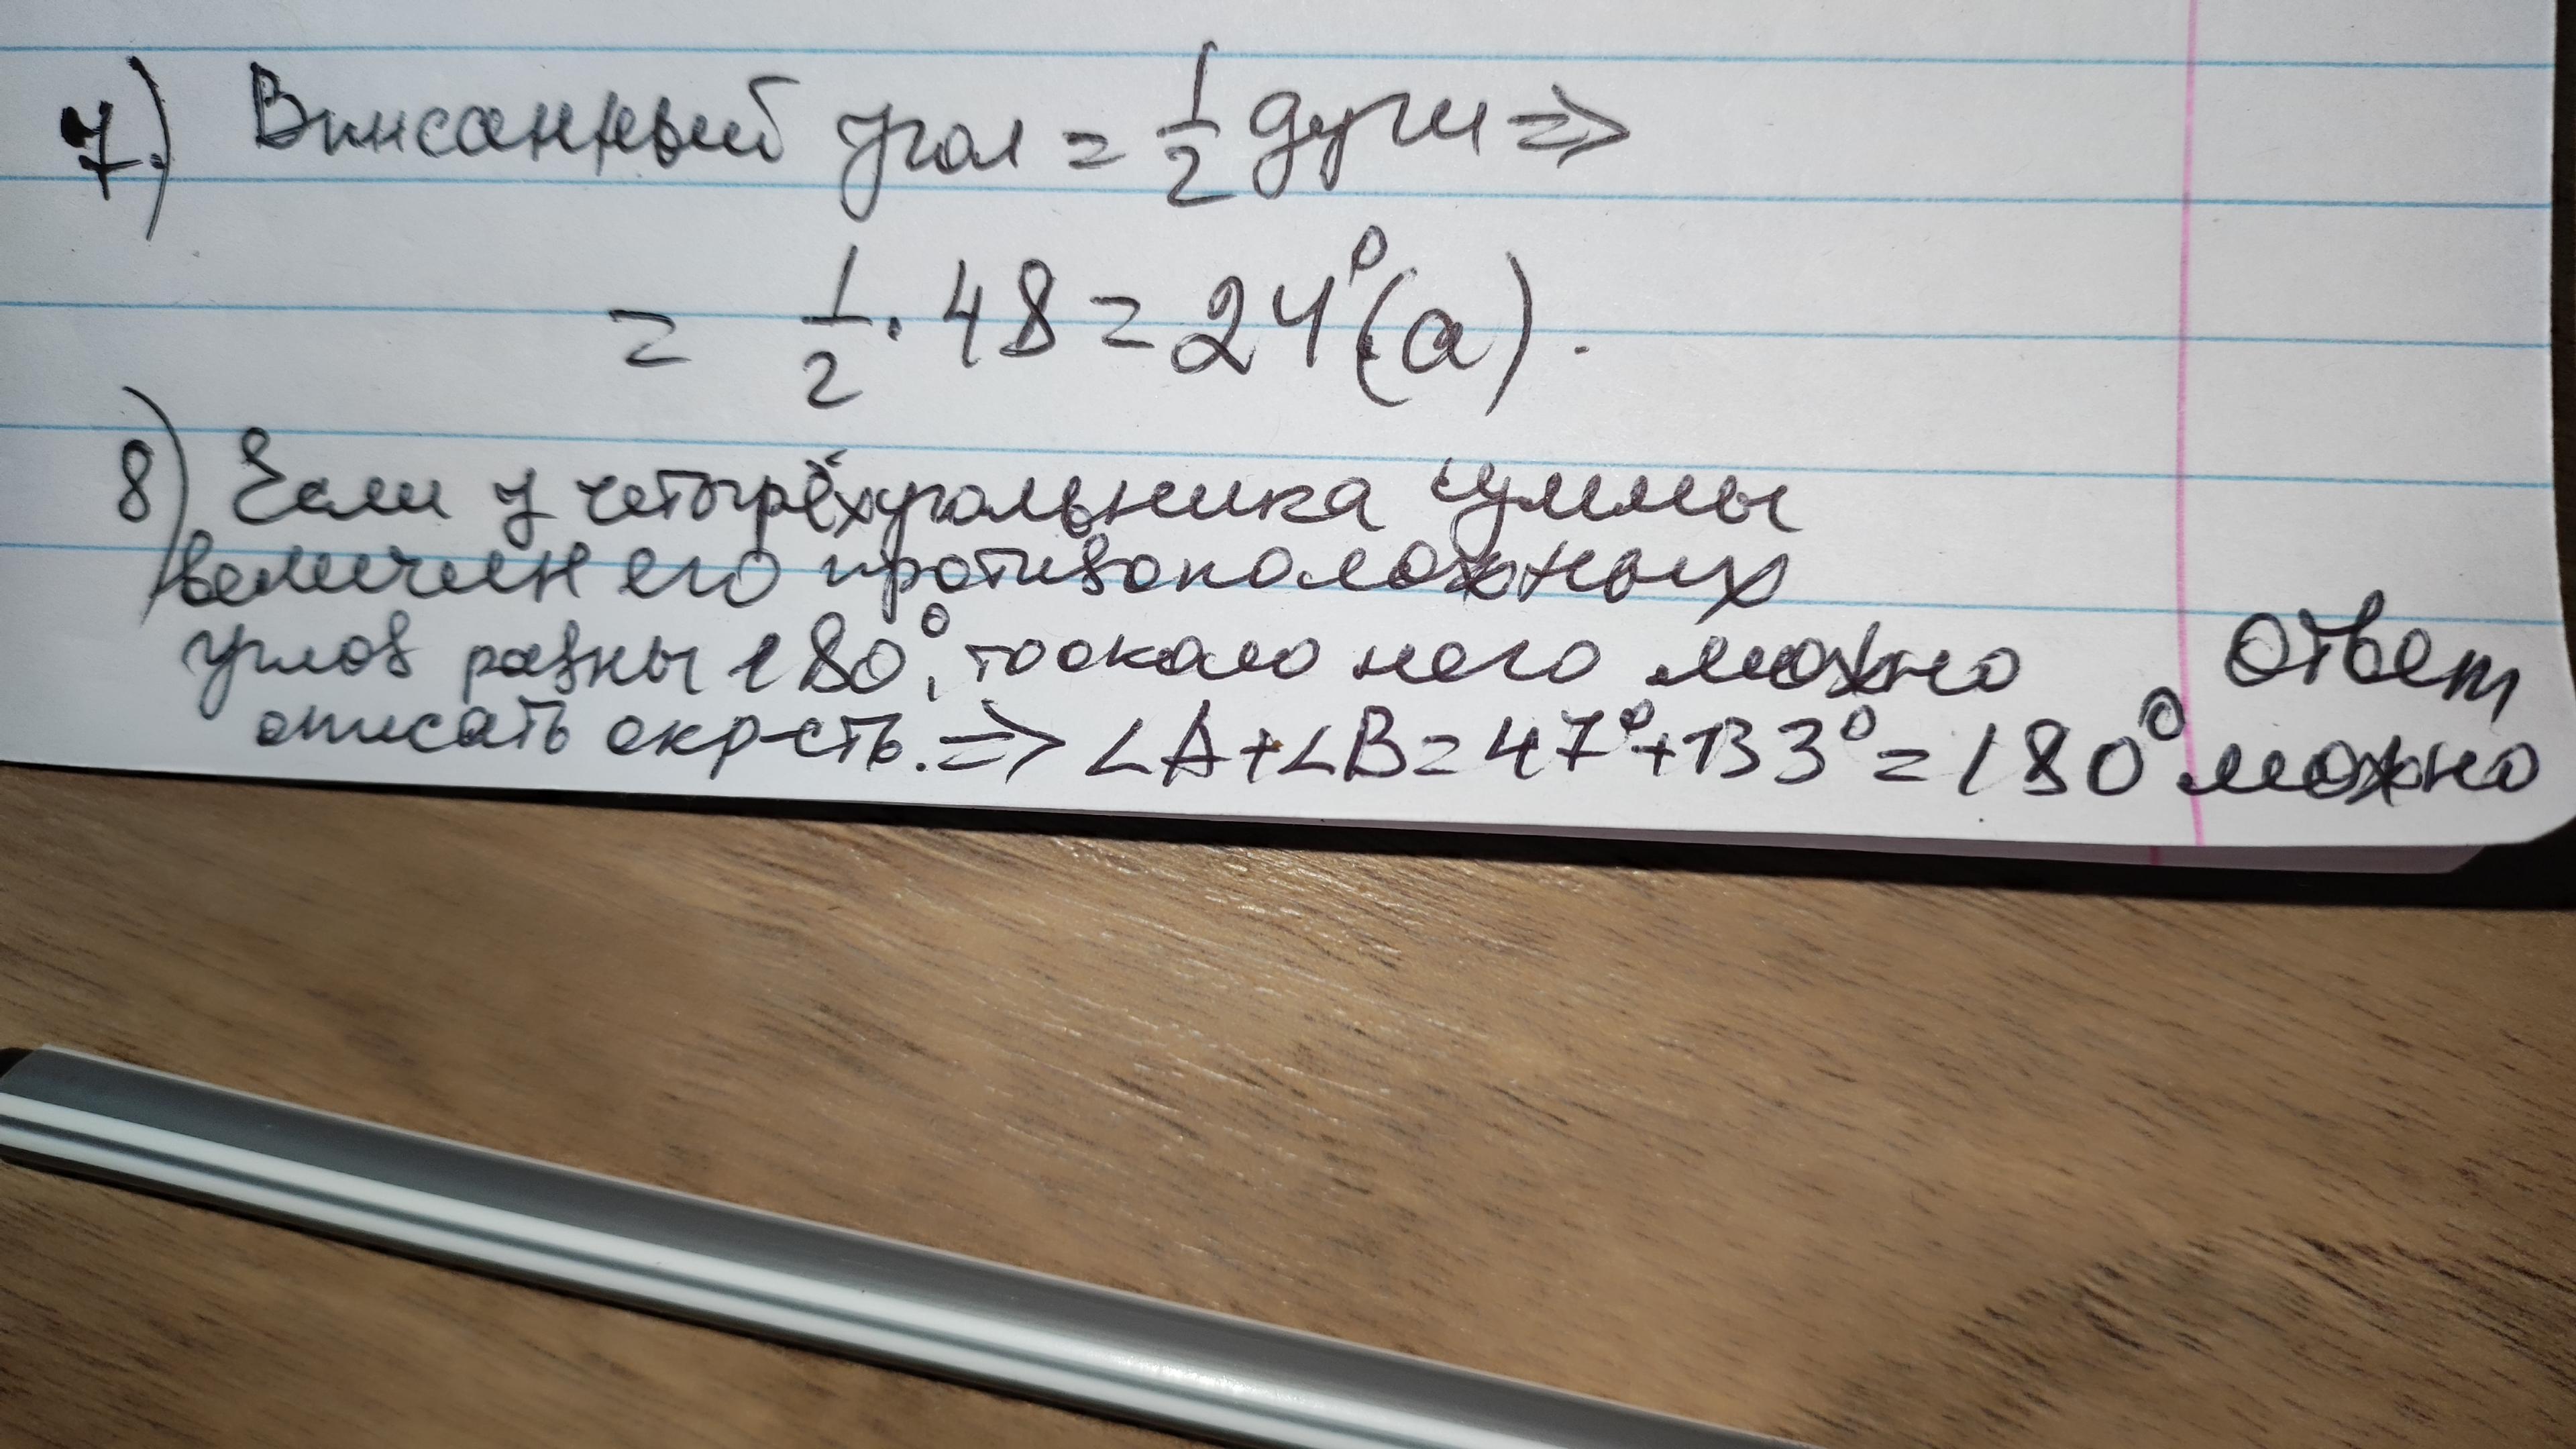 7.) Винсанный угол = 1/2 дуги =>
= 1/2 · 48 = 24°(а).
8) Если у четогрёхугольника суммы
величин его противоположных
углов равны 180°, то около него можно
описать окр-сть. => ∠A+∠B=47°+133°=180° Ответ можно